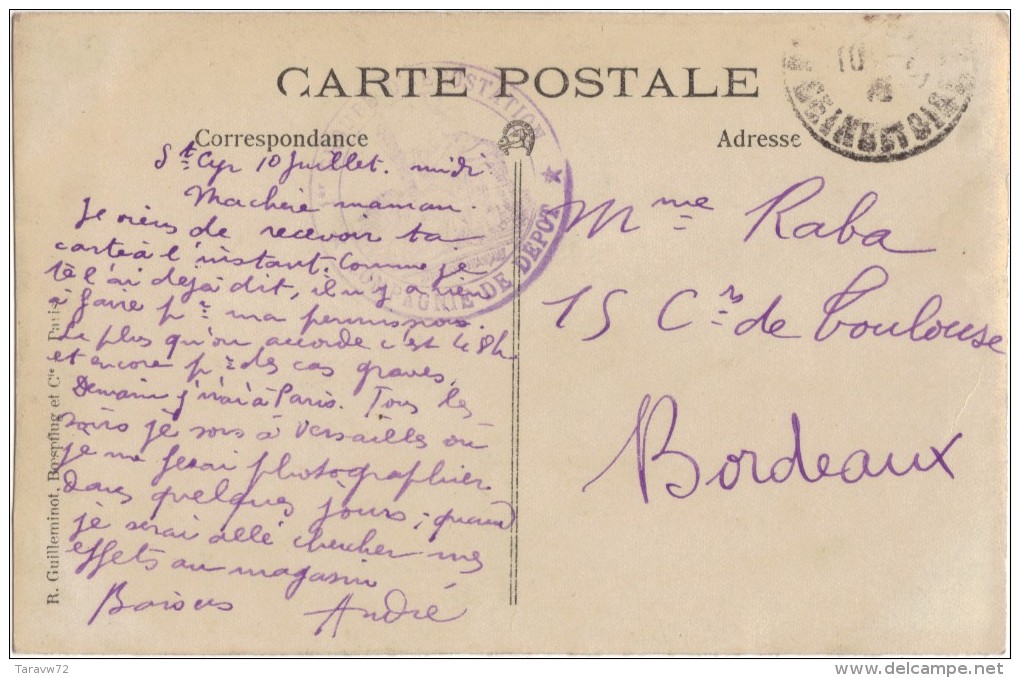 CARTE POSTALE
Correspondance
Adresse
St Cyr 10 Juillet. midi.
Ma chère maman.
Je viens de recevoir ta
carte à l'instant. Comme je
te l'ai déjà dit, il n'y a rien
à faire pr ma permission.
Le plus qu'on accorde c'est 48h
et encore pr des cas graves.
Demain j'irai à Paris. Tous les
soirs je sors à Versailles où
je me ferai photographier
dans quelques jours, quand
je serai allé chercher mes
effets au magasin
Baisers André
Mme Raba
15 Crs de Toulouse
Bordeaux
COMPAGNIE DE DEPOT
R. Guilleminot, Bœspflug et Cie - Paris
Taravw72
delcampe.net